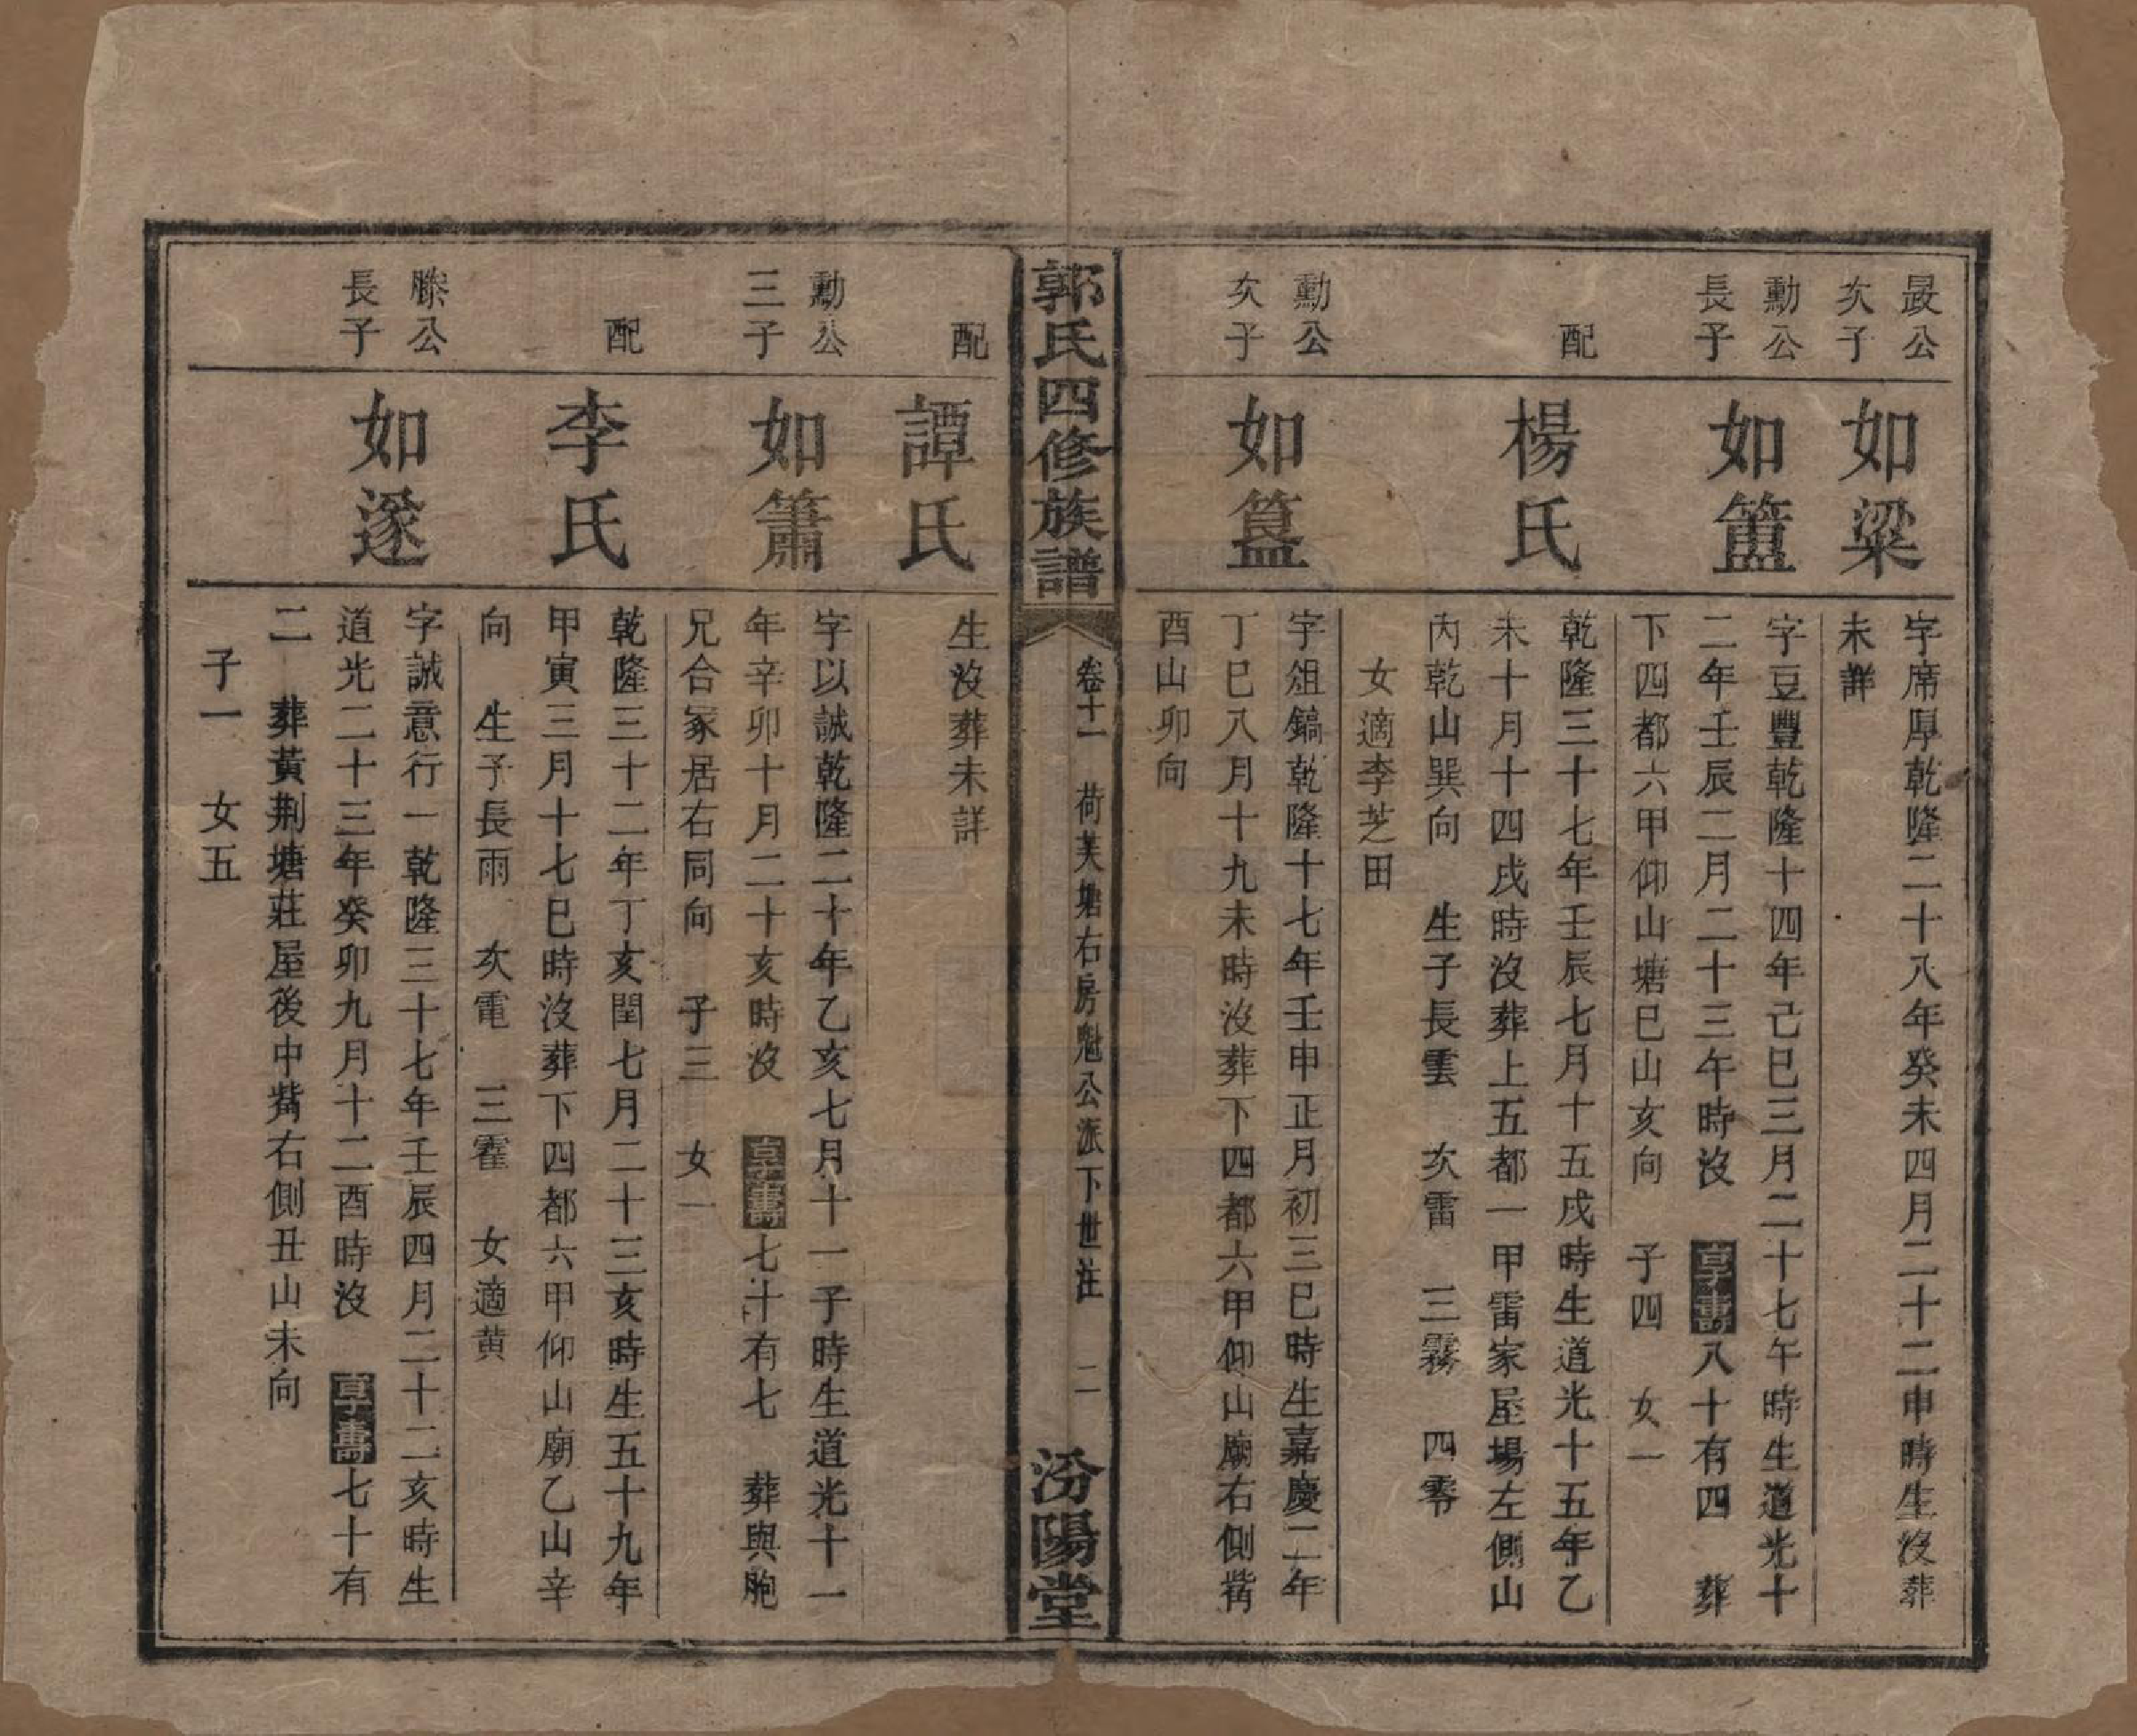 晸公
次子
如粱
字席厚乾隆二十八年癸未四月二十二申時生沒葬
未詳
勳公
長子
如簠
字豆豐乾隆十四年己巳三月二十七午時生道光十
二年壬辰二月二十三午時沒 享壽八十有四 葬
下四都六甲仰山塘巳山亥向 子四 女一
配
楊氏
乾隆三十七年壬辰七月十五戌時生道光十五年乙
未十月十四戌時沒葬上五都一甲雷家屋場左側山
內乾山巽向 生子長雲 次雷 三霧 四零
女適李芝田
勳公
次子
如簋
字俎鎬乾隆十七年壬申正月初三巳時生嘉慶二年
丁巳八月十九未時沒葬下四都六甲仰山廟右側觜
酉山卯向
郭氏四修族譜
卷十一 荷芙塘右房魁公派下世注 二
汾陽堂
配
譚氏
生沒葬未詳
勳公
三子
如簫
字以誠乾隆二十年乙亥七月十一子時生道光十一
年辛卯十月二十亥時沒 享壽七十有七 葬與胞
兄合冢居右同向 子三 女一
配
李氏
乾隆三十二年丁亥閏七月二十三亥時生五十九年
甲寅三月十七巳時沒葬下四都六甲仰山廟乙山辛
向 生子長雨 次電 三霍 女適黄
滕公
長子
如遂
字誠意行一乾隆三十七年壬辰四月二十二亥時生
道光二十三年癸卯九月十二酉時沒 享壽七十有
二 葬黃荆塘莊屋後中觜右側丑山未向
子一 女五